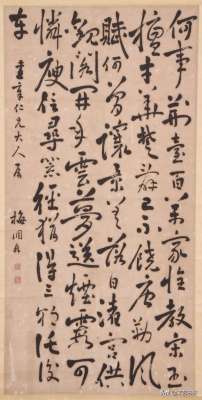 何事荊臺百萬家惟教宋玉
擅才華楚辭已不饒唐勒風
賦何曾讓景差落日渚宮供
觀閣開年雲夢送煙霞可
憐庾信尋荒徑猶得三朝托後
車
章仁兄大人屬
梅調鼎